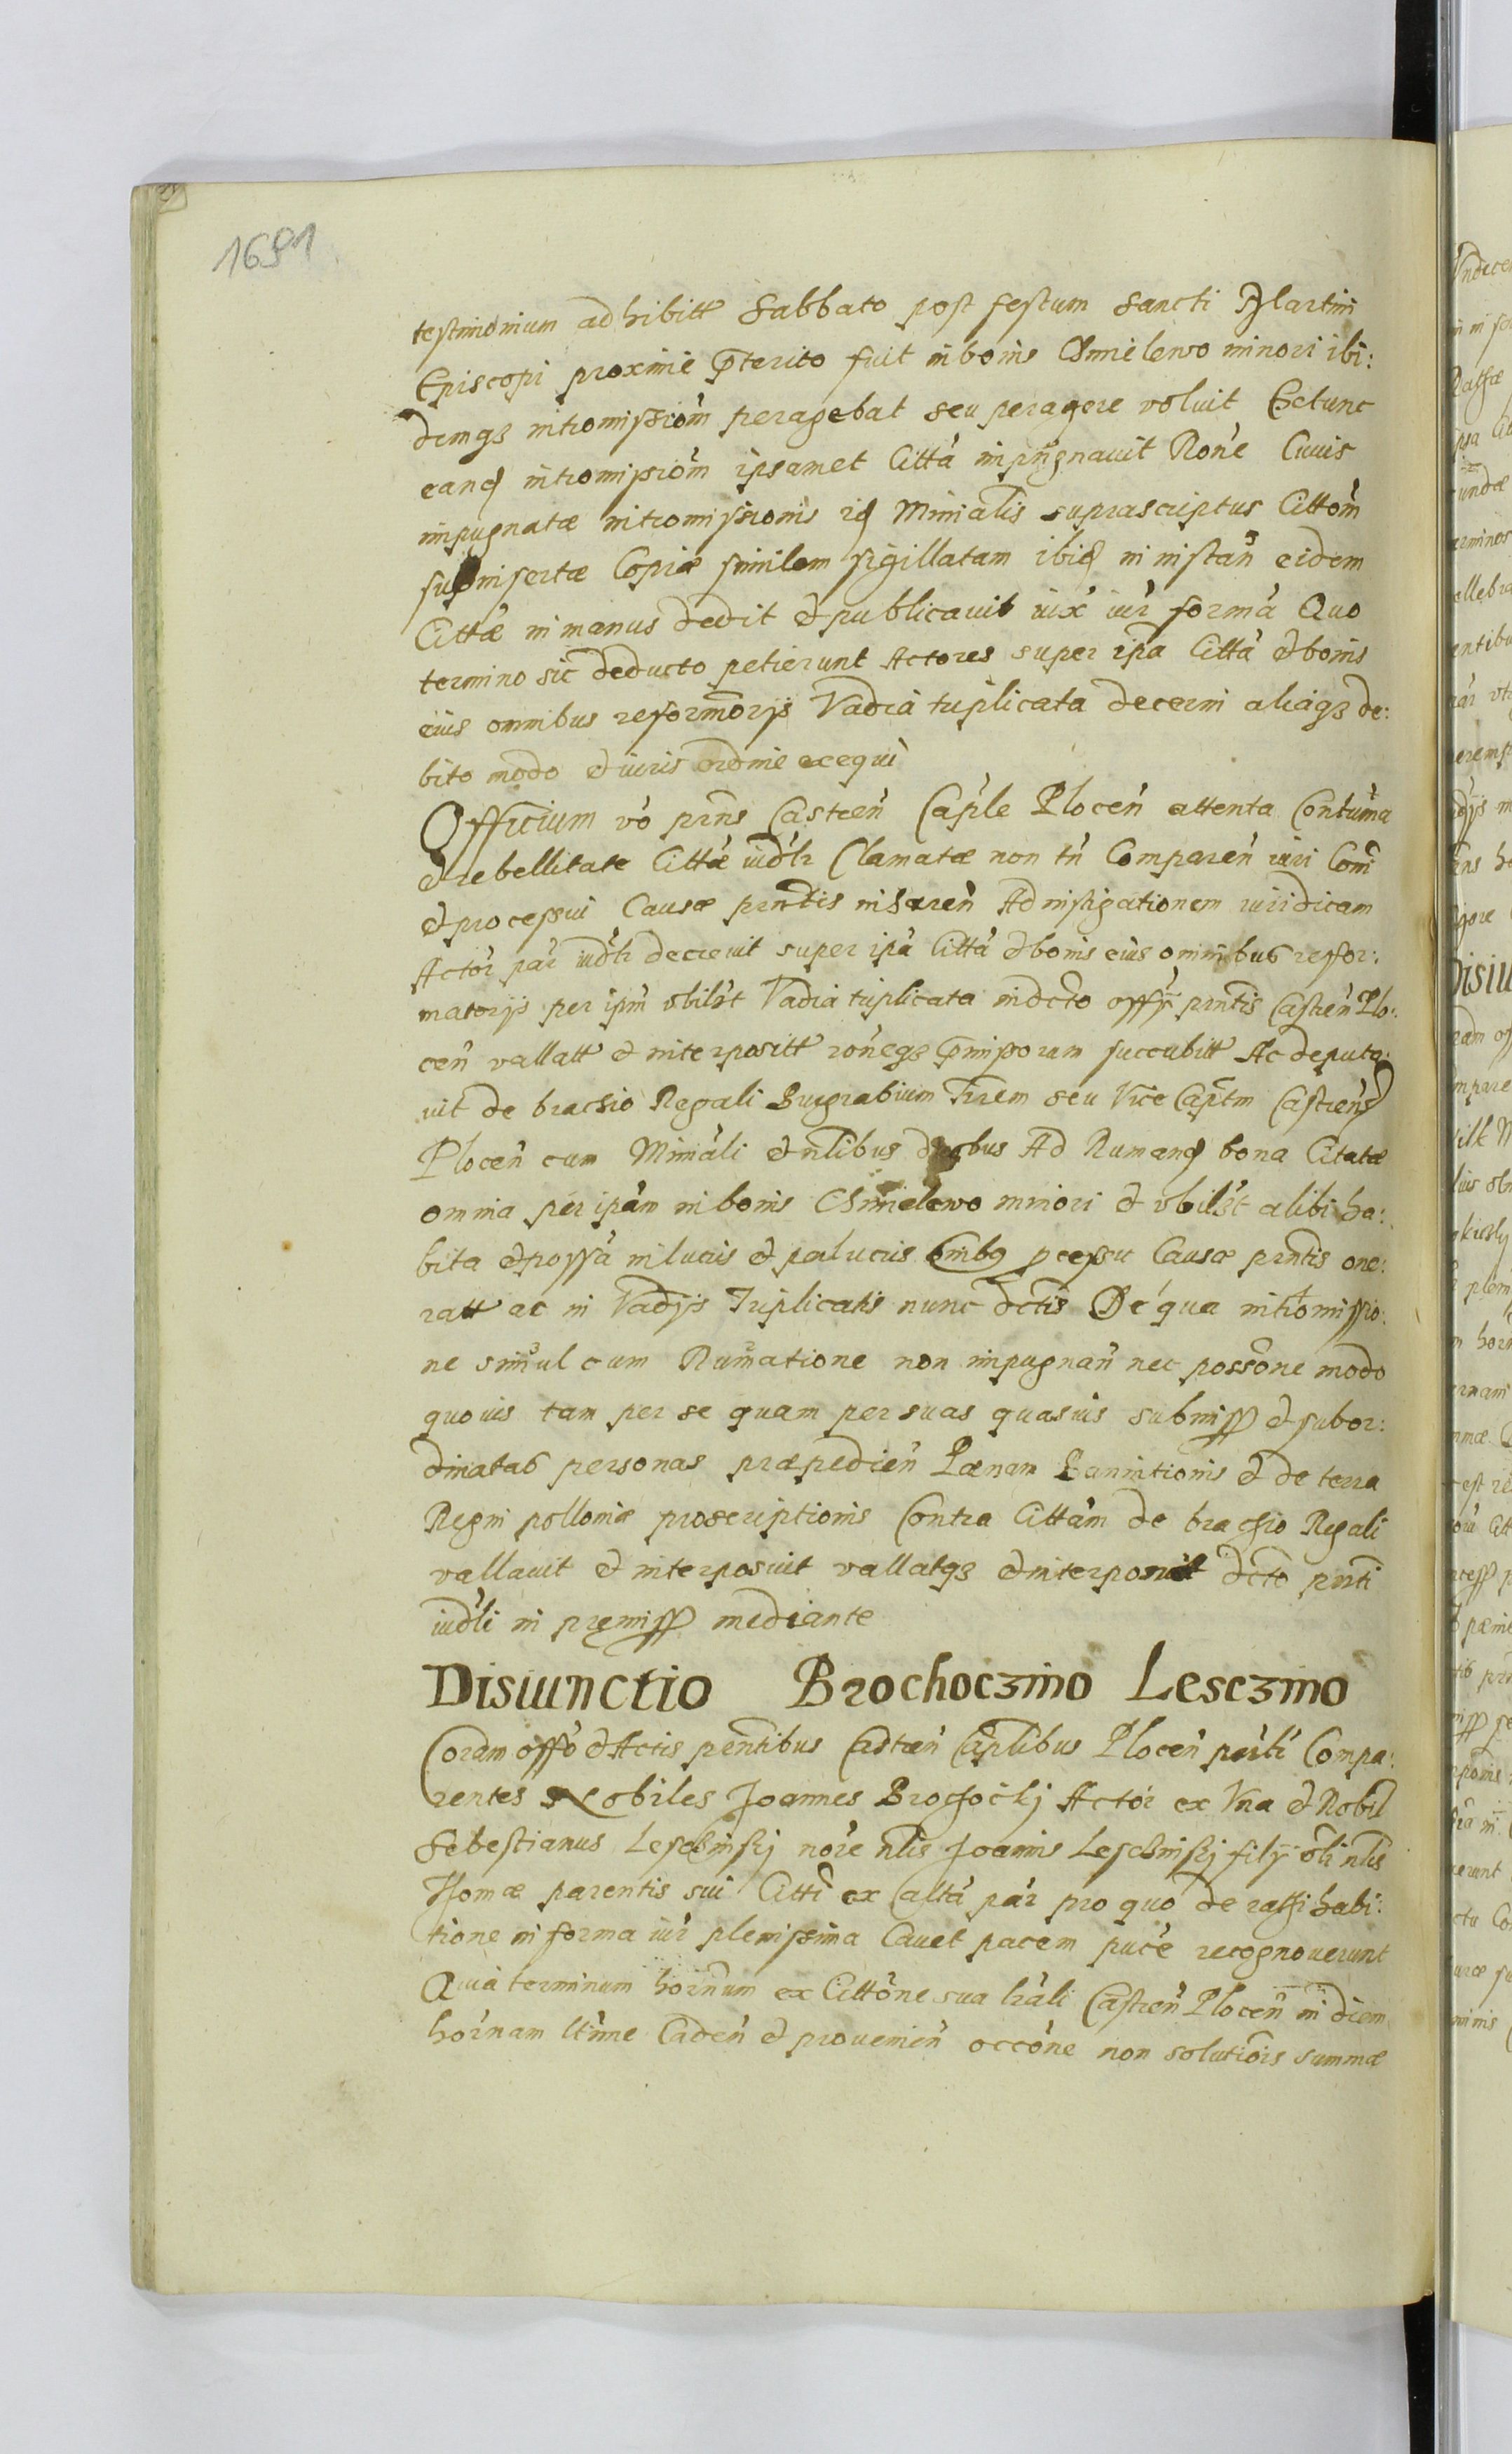 1691
testimonium adhibitt Sabbato post festum Sancti Martini
Episcopi proxime p̄terito fuit in bonis Chmielewo minori ibi:
demq3 intromissiom̄ peragebat seu peragere voluit Extunc
eand intromissiom̄ ipsamet Citta impugnavit Rone Cuius
impugnatæ intromissionis id Minialis suprascriptus Cittom̄
suprainsertæ Copiæ similem sigillatam ibid in instan̄ eidem
Cittæ in manus dedit et publicavit iux iur forma Quo
termino sic deducto petierunt Actores super ipa Citta et bonis
eius omnibus reformorys Vadia triplicata decerni aliaq3 de:
bito modo et iuris ordine exequi
Officium vo prns Castren Caple Plocen attenta Contuma
et rebellitate Cittæ iudlr Clamatæ non tn Comparen iuri Comi
et processui Causæ prntis inharen Ad instigationem iuridicam
Actor par iudlr decrevit super ipa Citta et bonis eius omnibus refor:
matorys per ipm ubilbt Vadia triplicata in dcto offy prntis Castren Plo:
cen vallatt et interpositt roneq3 p̄missorum succubitt Ac deputa:
vit de brachio Regali Burgrabium Trrem seu Vice Captm Castrens
Plocen cum Miniali et nlibus duobus Ad Rumand bona Citatæ
omnia per ipam in bonis Chmielewo minori et ubilbt alibi ha:
bita et possa in lucris et perlucris omnibq pcessu Causæ prntis one:
ratt ac in Vadys Triplicatis nunc dctis De qua intromissio:
ne simul cum Rumatione non impugnan nec possone modo
quovis tam per se quam per suas quasvis submiss et subor:
dinatas personas præpedien Pænam Bannitionis et de terra
Regni polloniæ proscriptionis Contra Cittam de brachio Regali
vallavit et interposuit vallatq3 et interponit dcto prnti
iudli in præmiss mediante
Disiunctio Brochoczino Lesczino
Coram offo et Actis prntibus Castren Caplibus Plocen parlr Compa:
rentes Nobiles Joannes Brochoczkj Actor ex Una et Nobil
Sebestianus Lesczinskj nore nlis Joannis Lesczinskj fily olr nlis
Thomæ parentis sui Citti ex alta par pro quo de rathihabi:
tione in forma iur plenissima Cavet pacem puce recognoverunt
Quia terminum hornum ex Cittone sua lrali Castren Plocen in diem
hornam ltime Caden et provenien occone non solutiois summæ